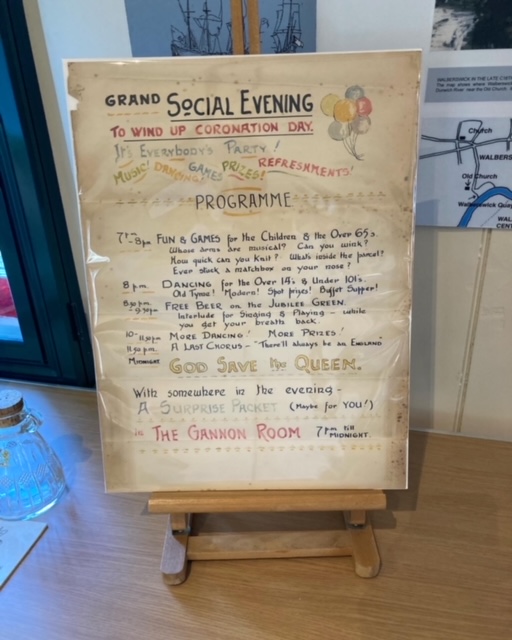 GRAND SOCIAL EVENING
TO WIND UP CORONATION DAY.
It's EVERYBODY'S PARTY!
MUSIC! DANCING! GAMES PRIZES! REFRESHMENTS!
PROGRAMME
7pm-8pm FUN & GAMES for the Children & the Over 65s.
Whose arms are musical? Can you wink?
How quick can you Knit? What's inside the parcel?
Ever stuck a matchbox on your nose?
8pm DANCING for the Over 14's & Under 101's.
Old Tyme! Modern! Spot prizes! Buffet Supper!
9.30pm FREE BEER on the JUBILEE GREEN.
Interlude for Singing & Playing - while
you get your breath back.
10- MORE DANCING! MORE PRIZES!
A LAST CHORUS - "There'll always be an ENGLAND
MIDNIGHT GOD SAVE the QUEEN.
With somewhere in the evening -
A SURPRISE PACKET (Maybe for YOU!)
in THE GANNON ROOM 7pm till
MIDNIGHT.
WALBERSWICK IN THE LATE
Church
WALBERS
Old Church
Walberswick Quay
WAL
CENT